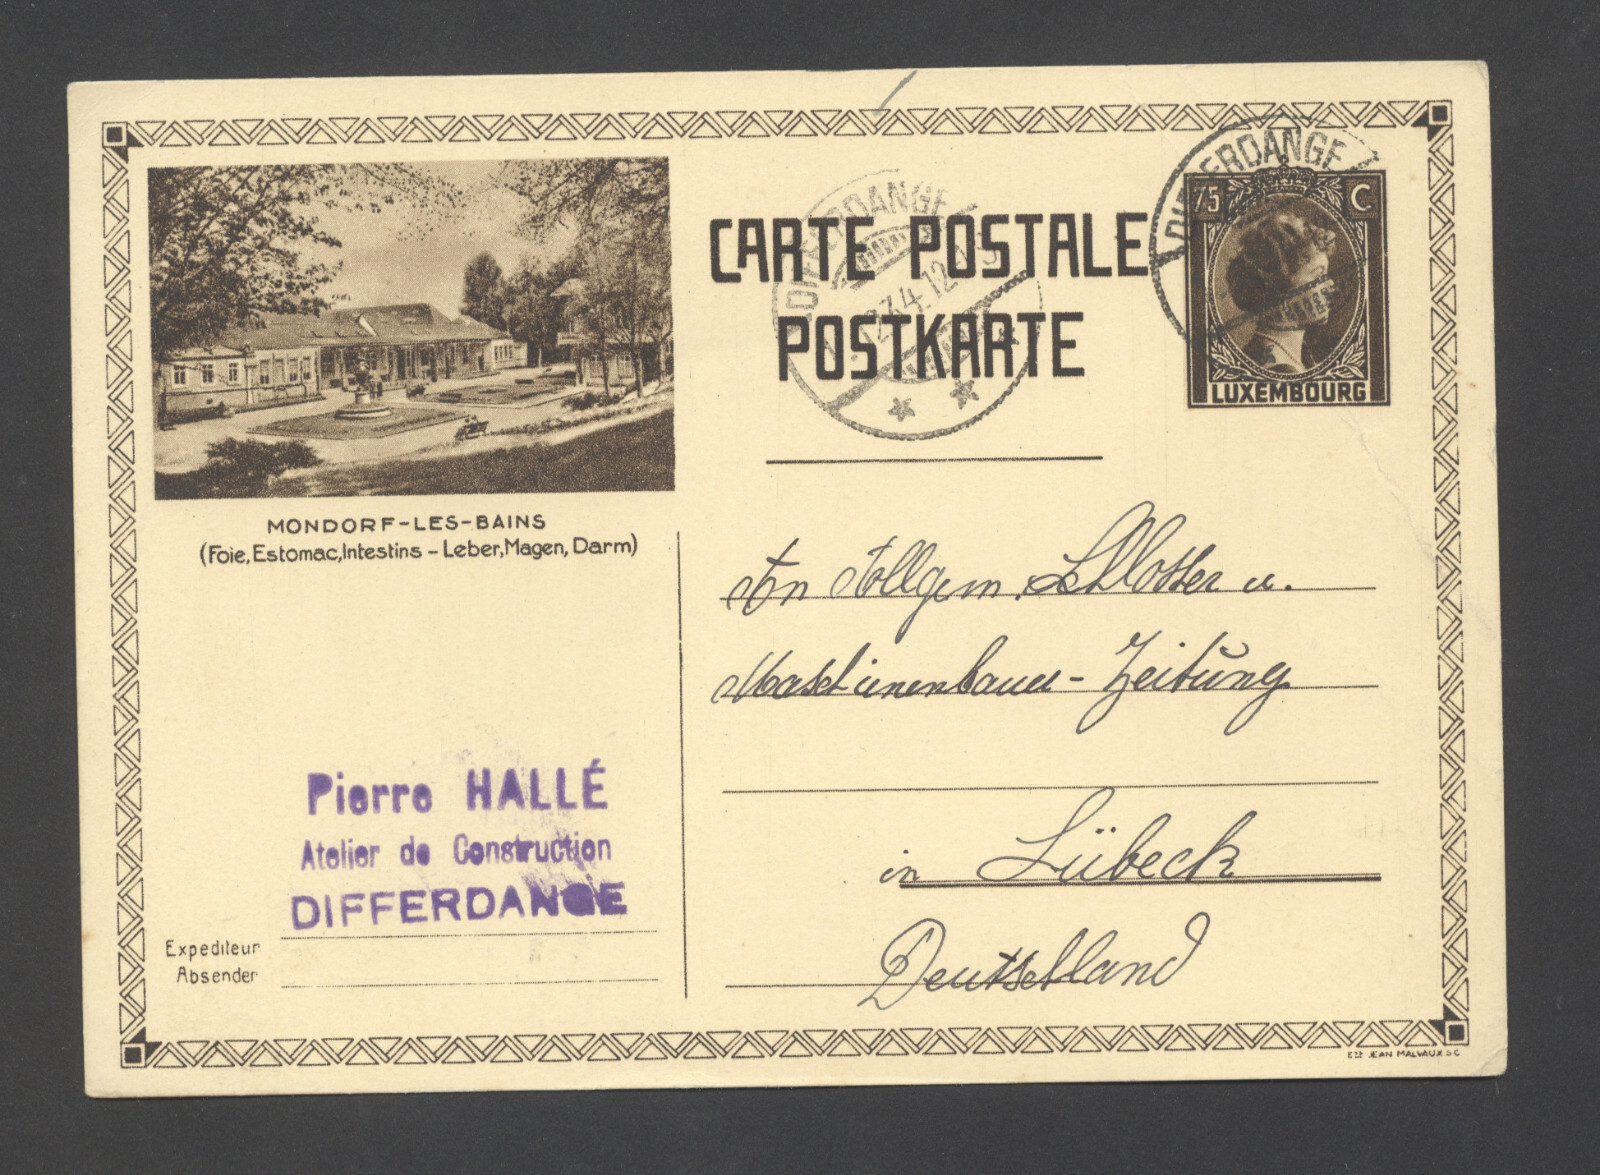 CARTE POSTALE
POSTKARTE
DIFFERDANGE
DIFFERDANGE
75 C
LUXEMBOURG
MONDORF-LES-BAINS
(Foie, Estomac, Intestins - Leber, Magen, Darm)
An Allgem. Schlosser u.
Maschinenbauer-Zeitung
in Lübeck
Deutschland
Pierre HALLÉ
Atelier de Construction
DIFFERDANGE
Expediteur
Absender
Ets JEAN MALVAUX S.C